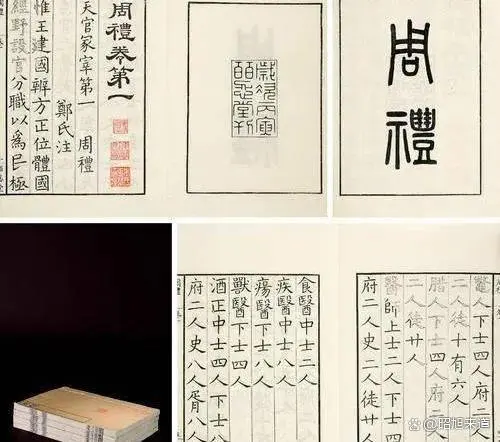 周禮卷第一
天官冢宰第一 周禮 鄭氏注
惟王建國辨方正位體國
經野設官分職以為民極
歲次丙寅
皕忍堂刊
周禮
鼈人下士四人府二人
二人徒十有六人
腊人下士四人府二人
二人徒廿人
醫師上士二人下士四
府二人史二人徒廿
食醫中士二人
疾醫中士八人
瘍醫下士八人
獸醫下士四人
酒正中士四人下士
府二人史八人胥八
@昭旭未道